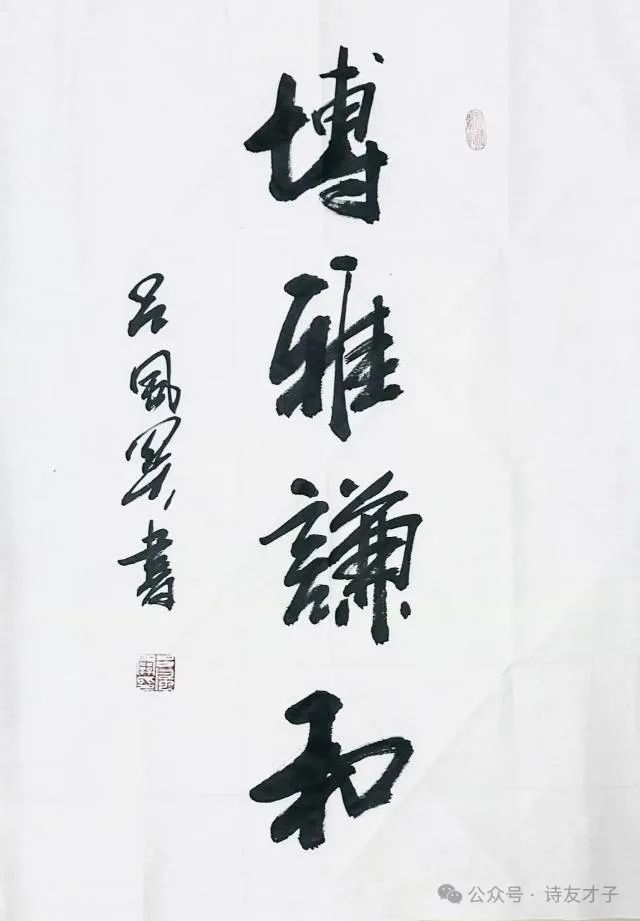 博雅謙和
吕風翼書
公众号·诗友才子